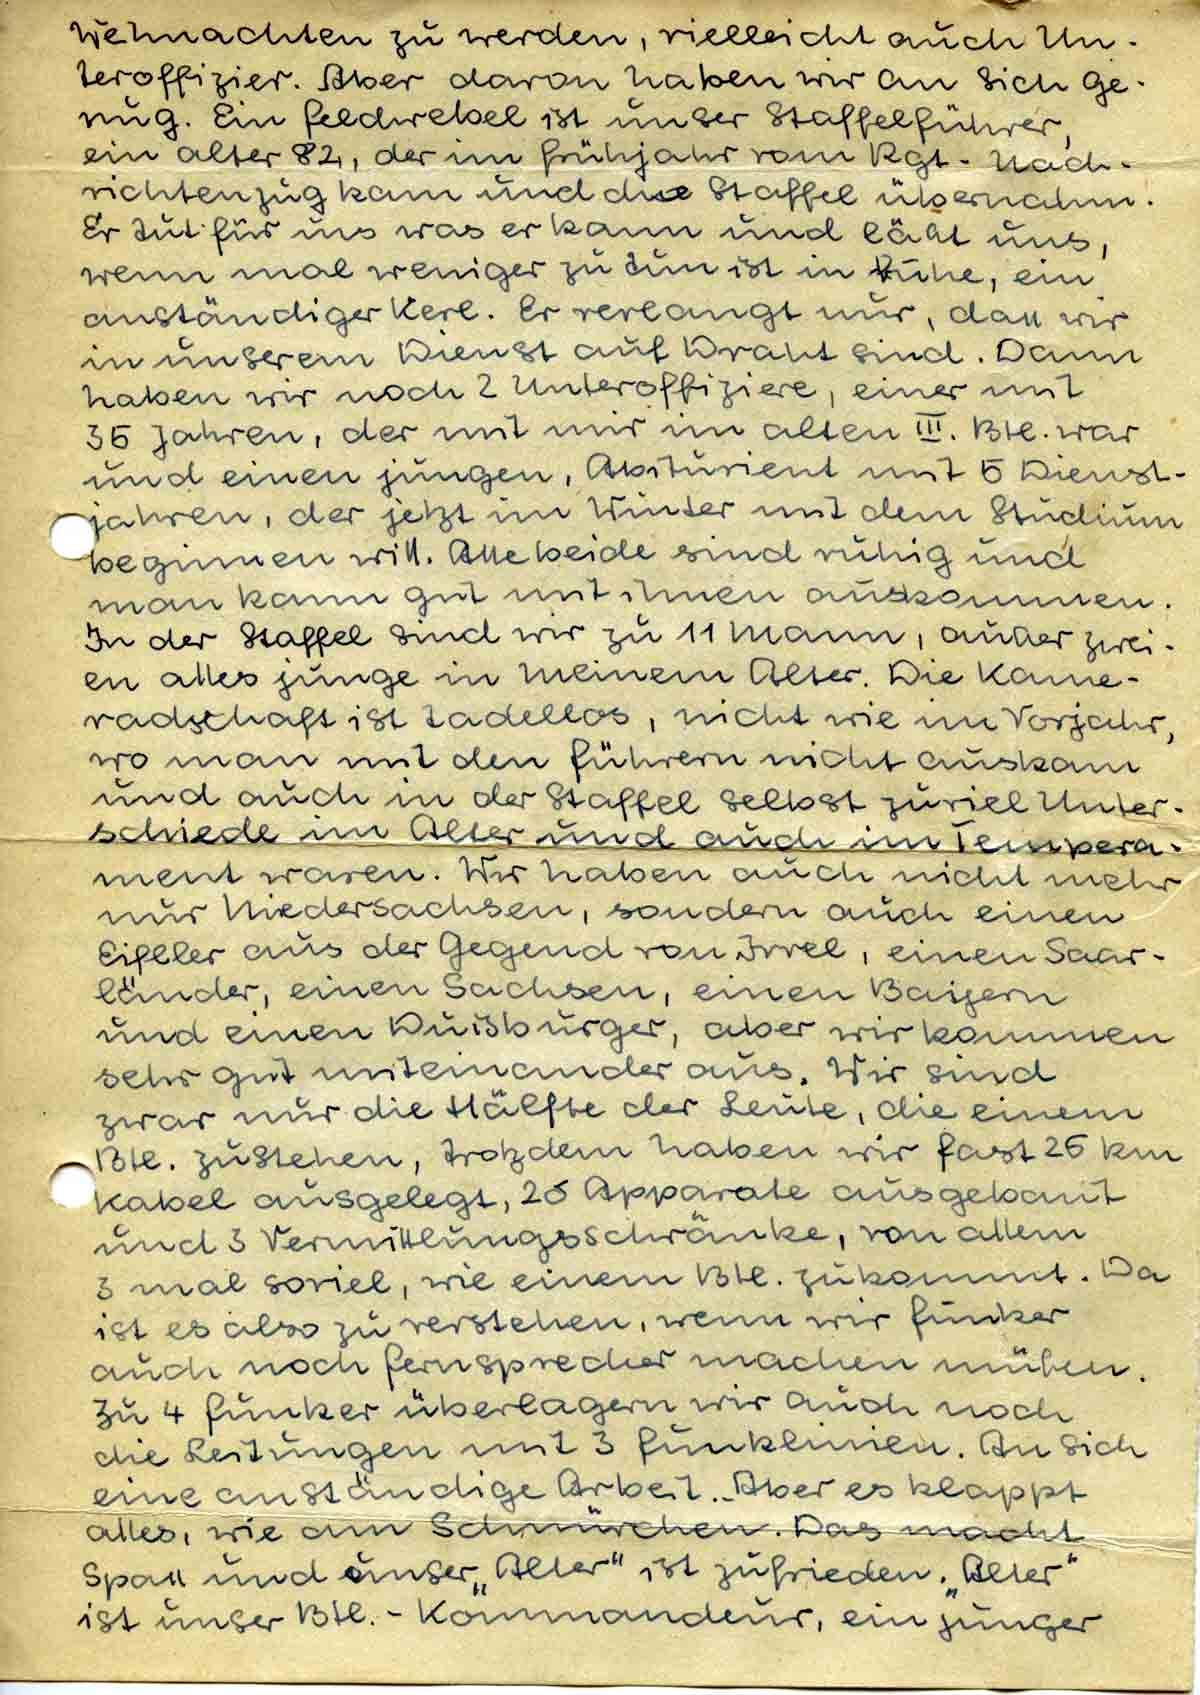 Weihnachten zu werden, vielleicht auch Un-
teroffizier. Aber davon haben wir an sich ge-
nug. Ein Feldwebel ist unser Staffelführer,
ein alter 82, der im Frühjahr vom Rgt.- Nach-
richtenzug kam und die Staffel übernahm.
Er tut für uns was er kann und läßt uns,
wenn mal weniger zu tun ist in Ruhe, ein
anständiger Kerl. Er verlangt nur, daß wir
in unserem Dienst auf Draht sind. Dann
haben wir noch 2 Unteroffiziere, einer mit
35 Jahren, der mit mir im alten III. Btl. war
und einen jungen, Abiturient mit 5 Dienst-
jahren, der jetzt im Winter mit dem Studium
beginnen will. Alle beide sind ruhig und
man kann gut mit ihnen auskommen.
In der Staffel sind wir zu 11 Mann, außer zwei-
en alles junge in meinem Alter. Die Kame-
radschaft ist tadellos, nicht wie im Vorjahr,
wo man mit den Führern nicht auskam
und auch in der Staffel selbst zuviel Unter-
schiede im Alter und auch im Tempera-
ment waren. Wir haben auch nicht mehr
nur Niedersachsen, sondern auch einen
Eifeler aus der Gegend von Irrel, einen Saar-
länder, einen Sachsen, einen Bayern
und einen Duisburger, aber wir kommen
sehr gut miteinander aus. Wir sind
zwar nur die Hälfte der Leute, die einem
Btl. zustehen, trotzdem haben wir fast 25 km
Kabel ausgelegt, 25 Apparate ausgebaut
und 3 Vermittlungsschränke, von allem
3 mal soviel, wie einem Btl. zukommt. Da
ist es also zu verstehen, wenn wir Funker
auch noch Fernsprecher machen müßen.
Zu 4 Funker überlagern wir auch noch
die Leitungen mit 3 Funklinien. An sich
eine anständige Arbeit. Aber es klappt
alles, wie am Schnürchen. Das macht
Spaß und unser „Alter“ ist zufrieden. „Alter“
ist unser Btl. - Kommandeur, ein junger